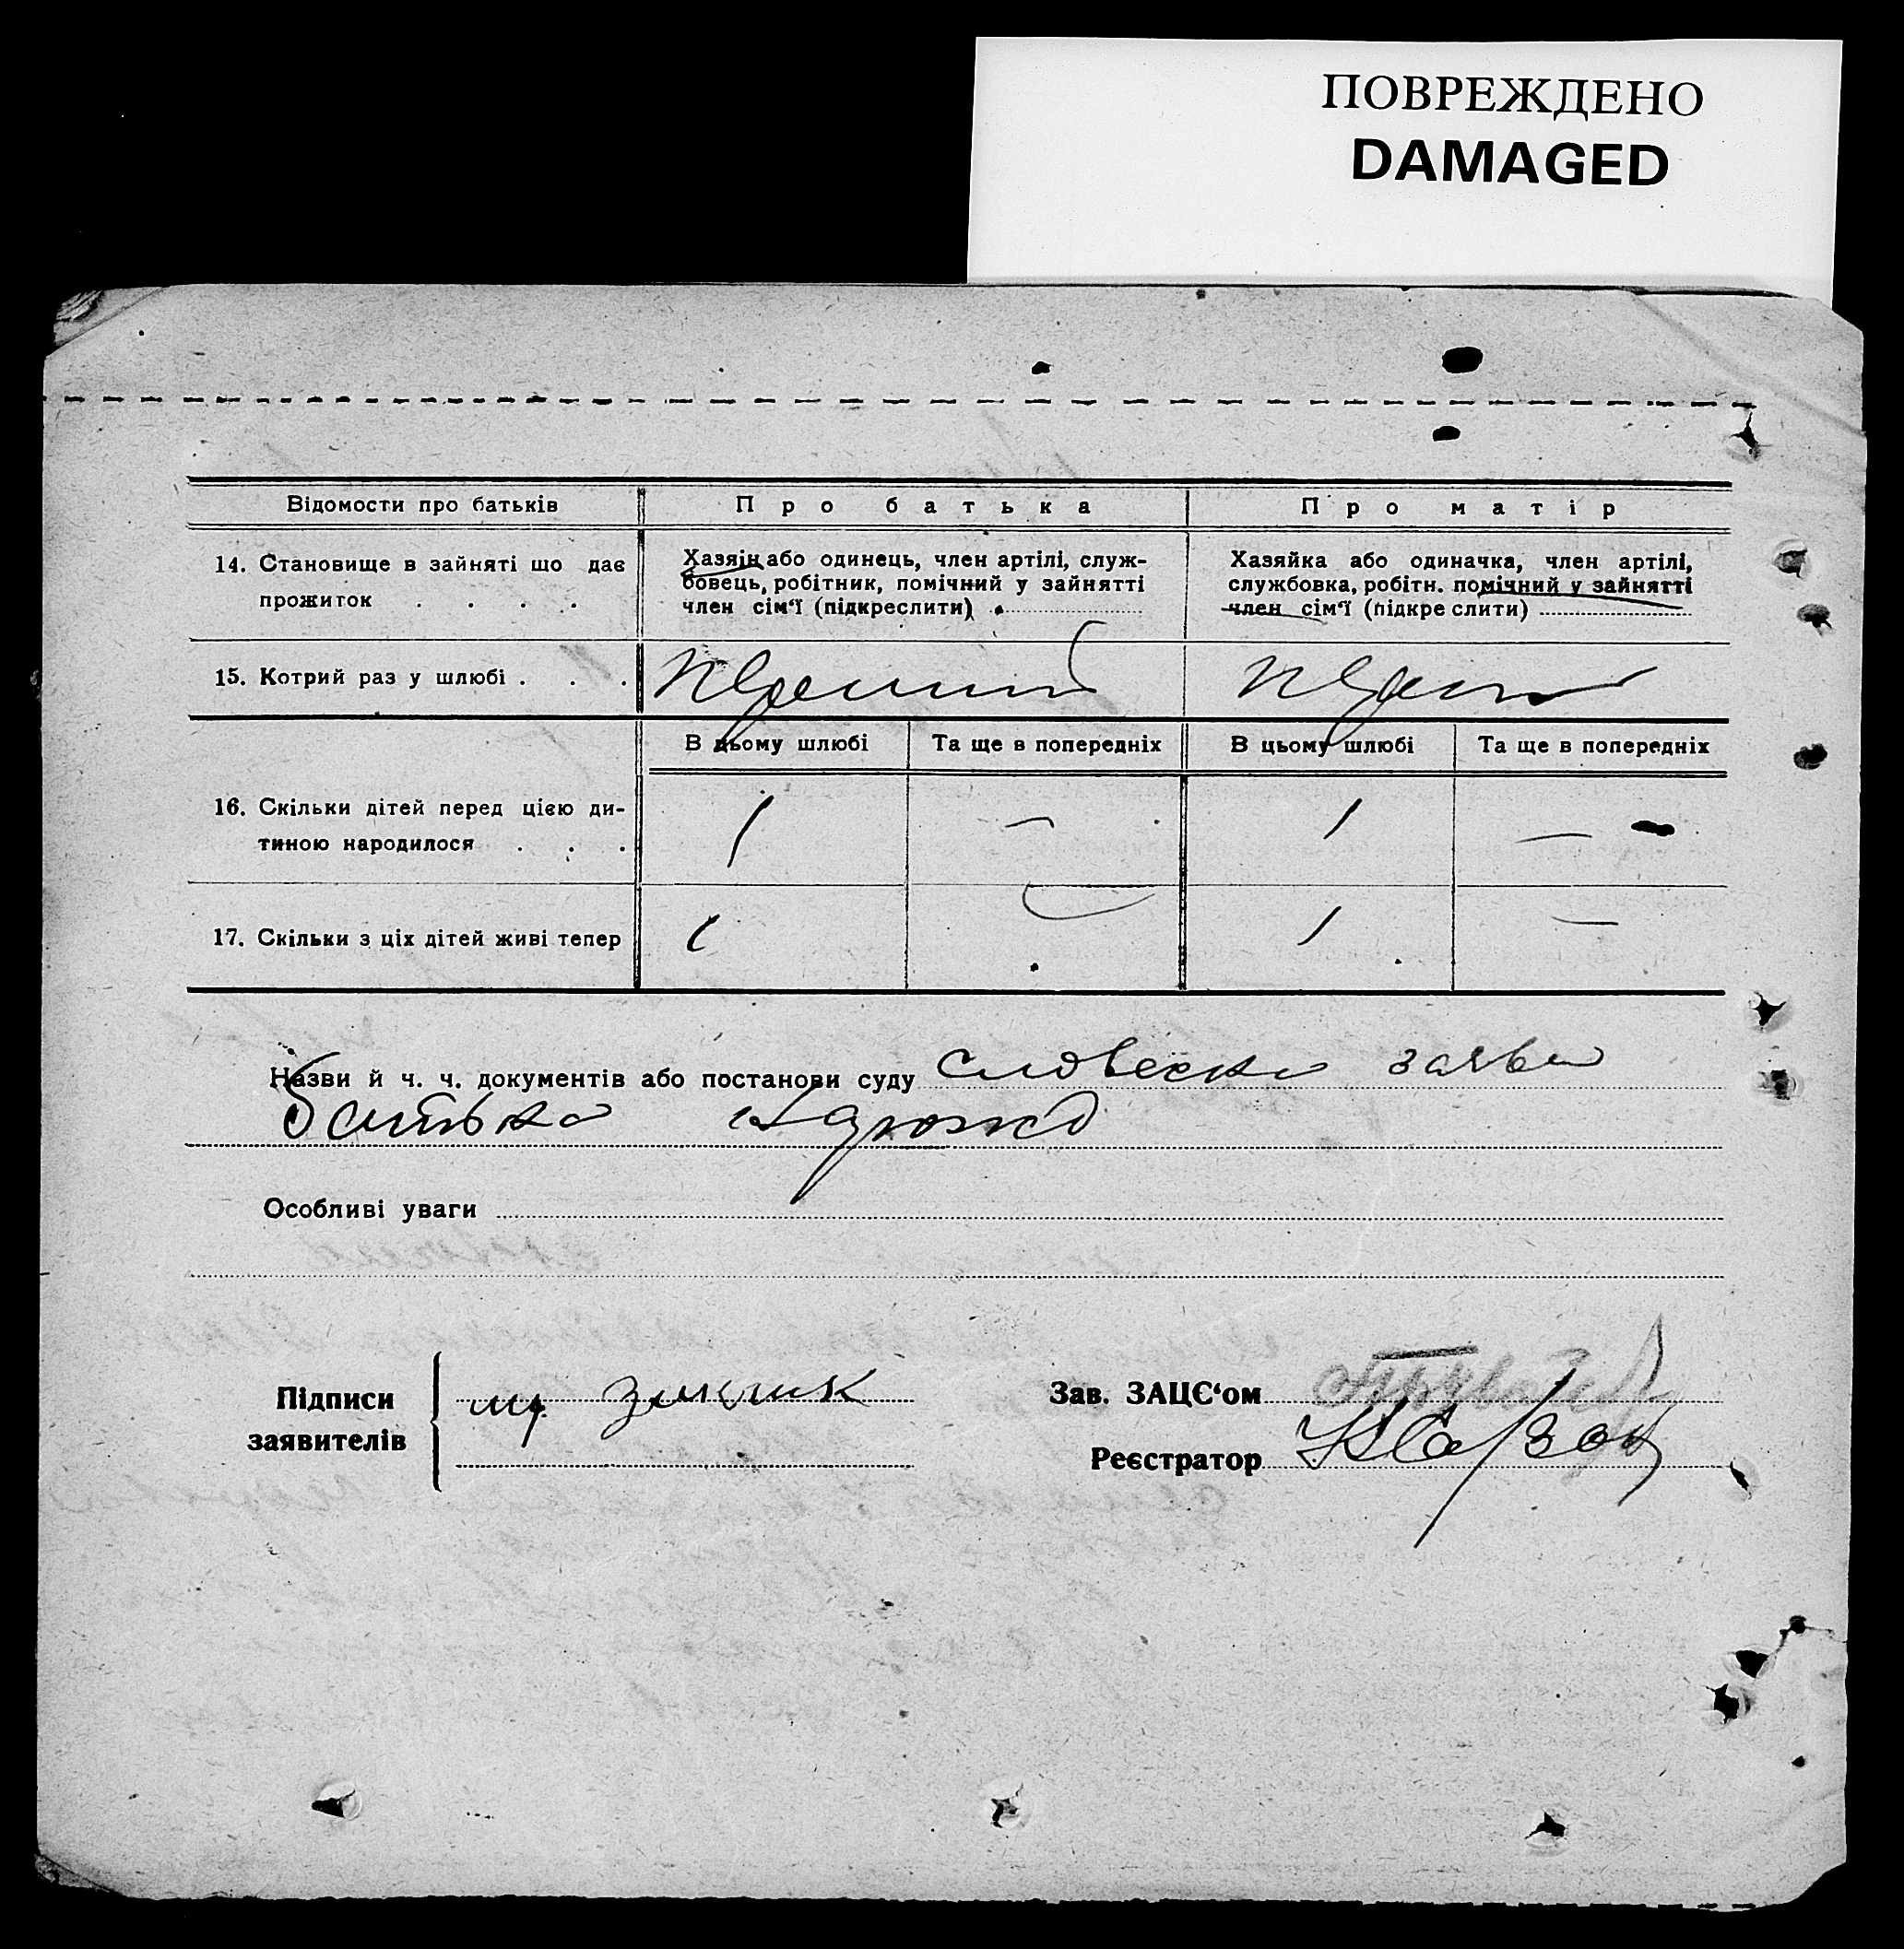 ПОВРЕЖДЕНО
DAMAGED
Відомости про батьків
Про батька
Про матір
14. Становище в зайняті що дає
прожиток . . . .
Хазяін або одинець, член артілі, служ-
бовець, робітник, помічний у зайнятті
член сім‘ї (підкреслити)
Хазяйка або одиначка, член артілі,
службовка, робітн. помічний у зайнятті
член сім‘ї (підкреслити)
15. Котрий раз у шлюбі . . .
первий
перший
В цьому шлюбі
Та ще в попередніх
В цьому шлюбі
Та ще в попередніх
16. Скільки дітей перед цією ди-
тиною народилося . . .
1 — 1 —
17. Скільки з ціх дітей живі тепер
1 1 —
Назви й ч. ч. документів або постанови суду словесна заява
батька
Особливі уваги
Підписи
заявителів
Зав. ЗАЦЄ‘ом
Реєстратор